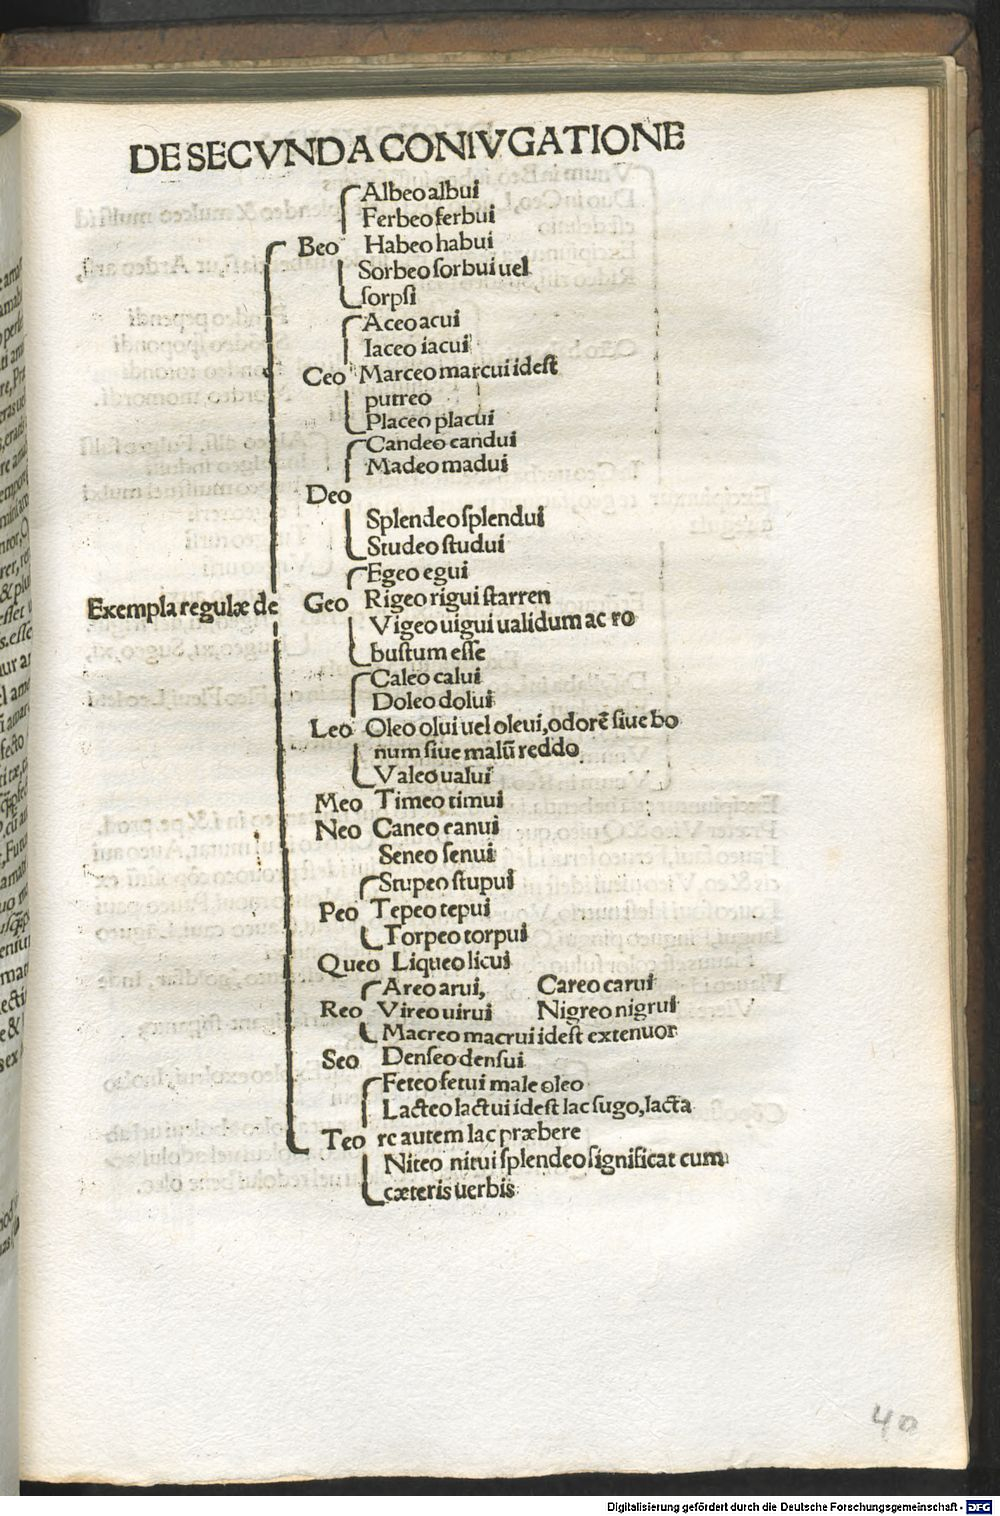 DE SECVNDA CONIVGATIONE
Albeo albui
Ferbeo ferbui
Beo Habeo habui
Sorbeo ſorbui uel
ſorpſi
Aceo acui
Iaceo iacui
Ceo Marceo marcui ideſt
putreo
Placeo placui
Candeo candui
Madeo madui
Deo
Splendeo ſplendui
Studeo ſtudui
Egeo egui
Exempla regulæ de Geo Rigeo rigui ſtarren
Vigeo uigui ualidum ac ro
buſtum eſſe
Caleo calui
Doleo dolui
Leo Oleo olui uel oleui, odorē ſiue bo
num ſiue malū reddo
Valeo ualui
Meo Timeo timui
Neo Caneo canui
Seneo ſenui
Stupeo ſtupui
Peo Tepeo tepui
Torpeo torpui
Queo Liqueo licui
Areo arui, Careo carui
Reo Vireo uirui Nigreo nigrui
Macreo macrui ideſt extenuor
Seo Denſeo denſui
Feteo fetui male oleo
Lacteo lactui ideſt lac ſugo, lacta
Teo re autem lac præbere
Niteo nitui ſplendeo ſignificat cum
cæteris uerbis
40
Digitalisierung gefördert durch die Deutsche Forschungsgemeinschaft - DFG